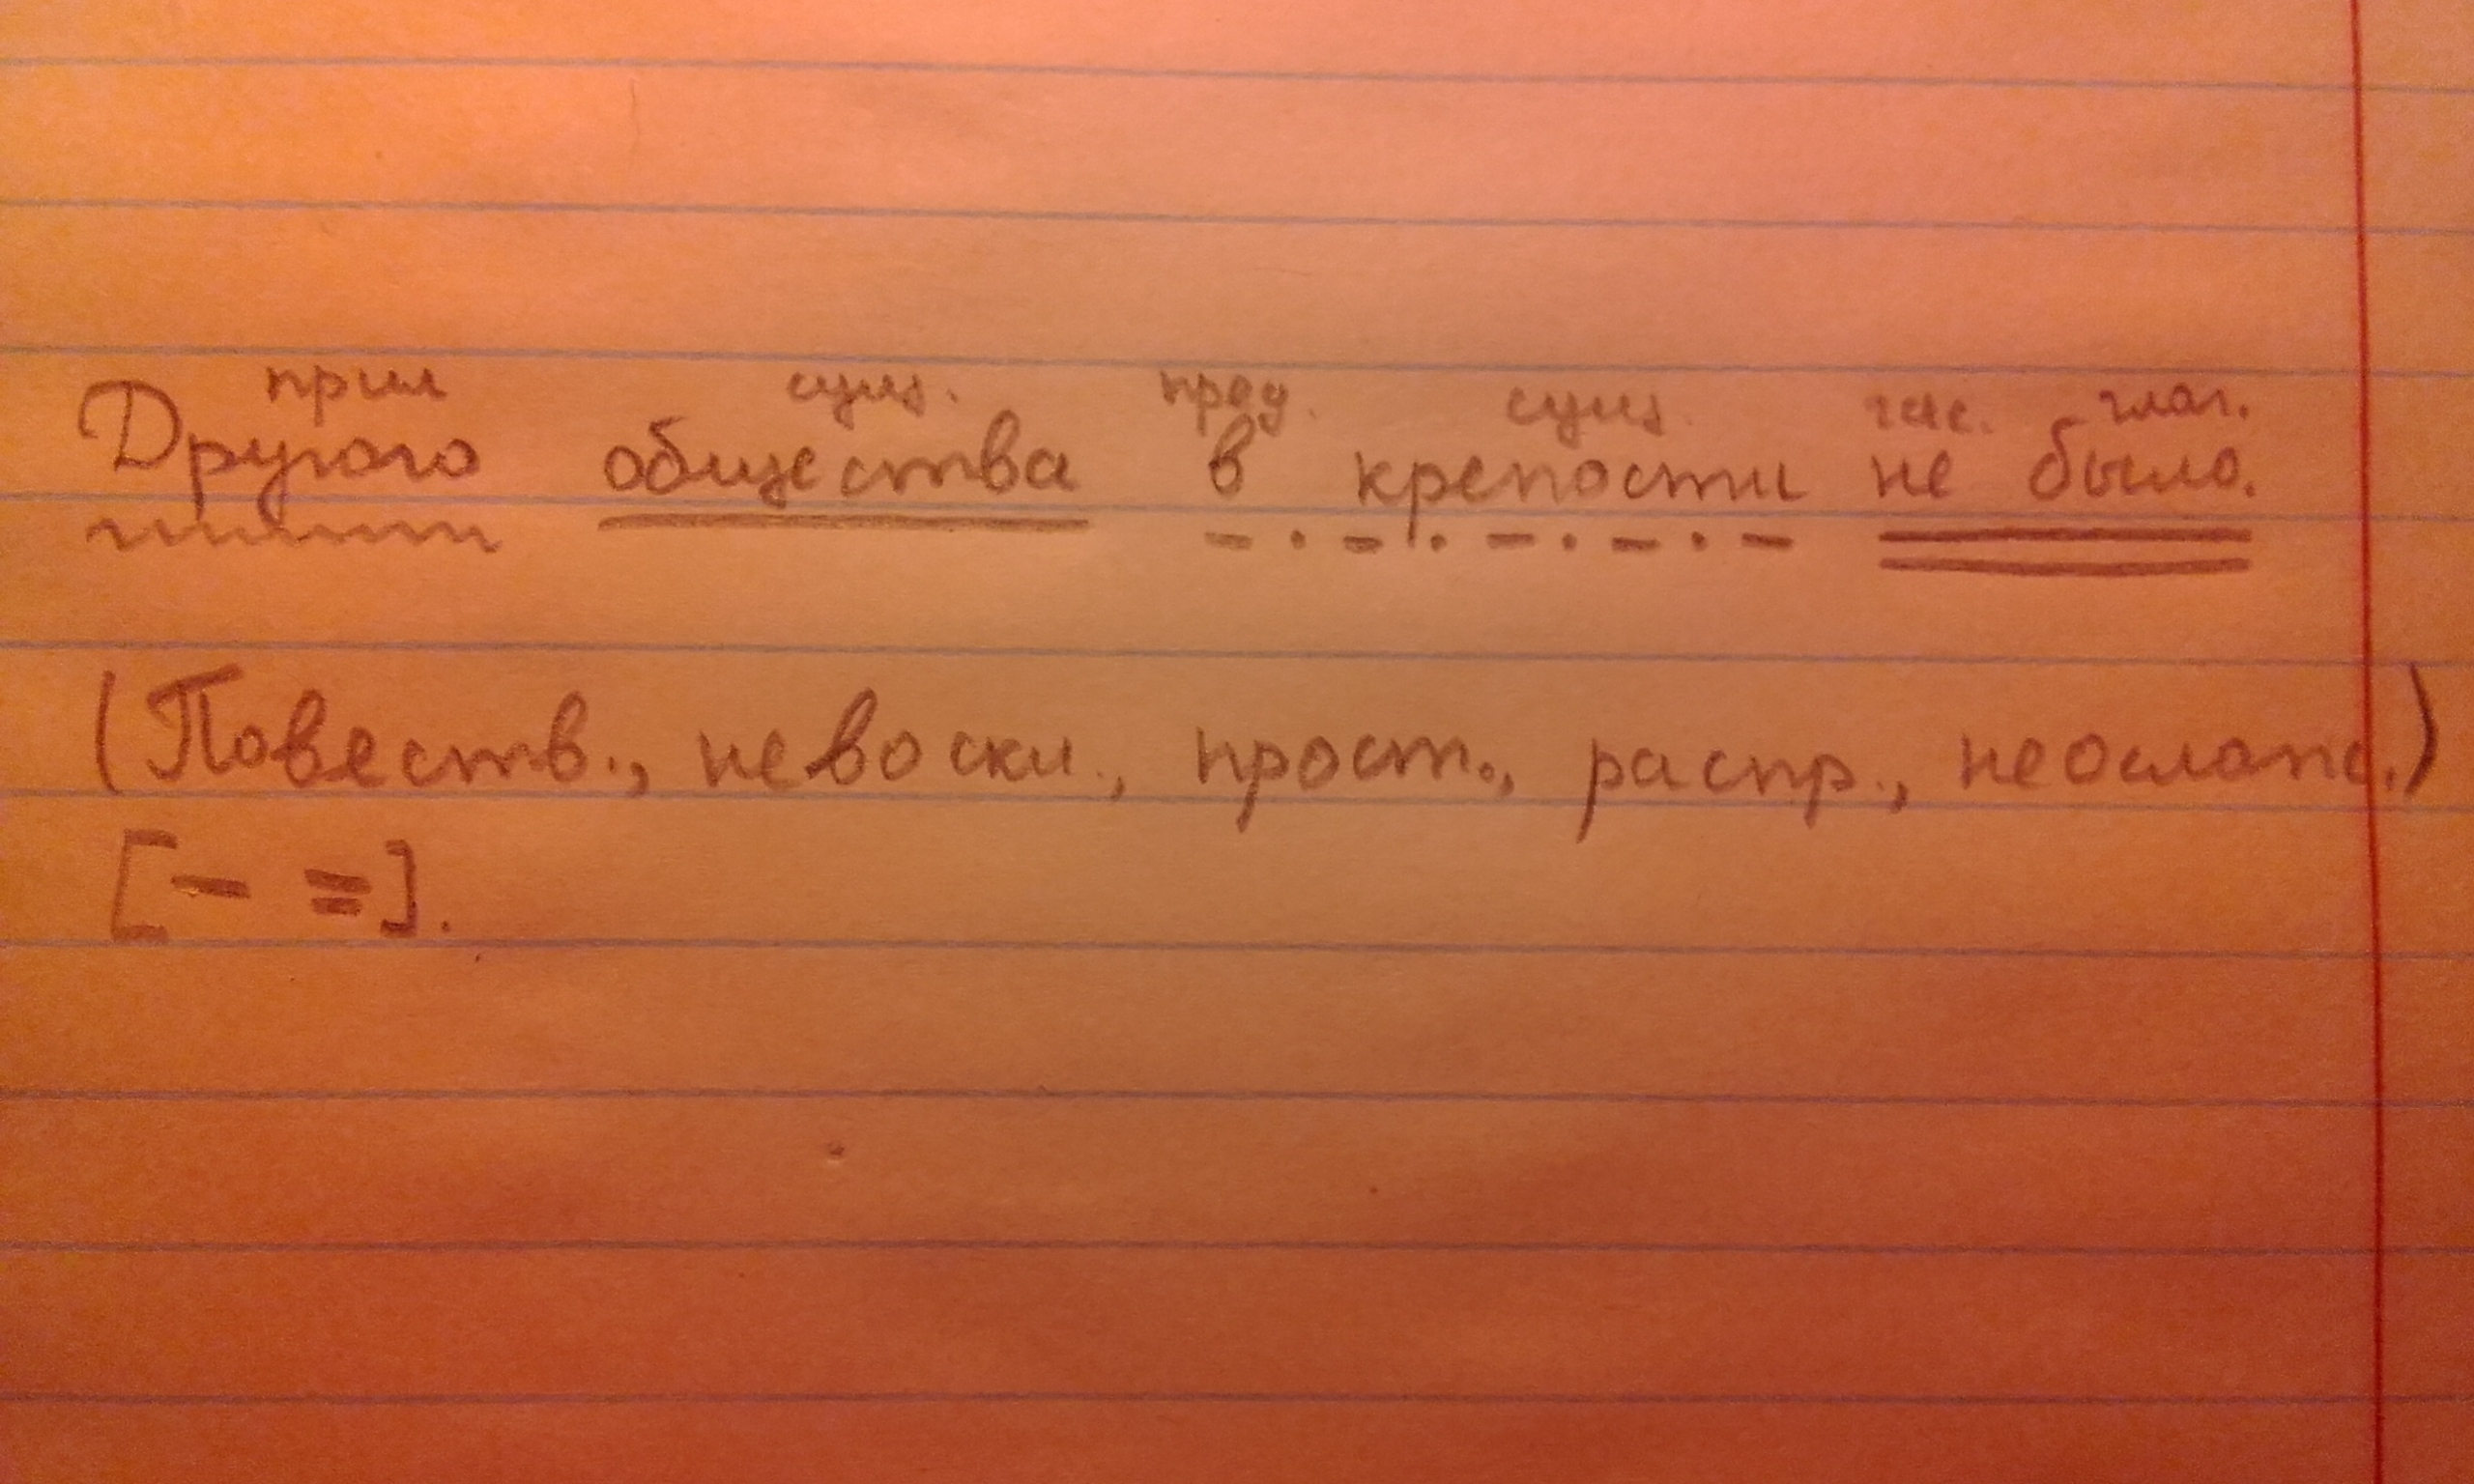 прил сущ. пред. сущ. час. глаг.
Другого общества в крепости не было.
(Повеств., невоскл., прост., распр., неослапс.)
[- =].